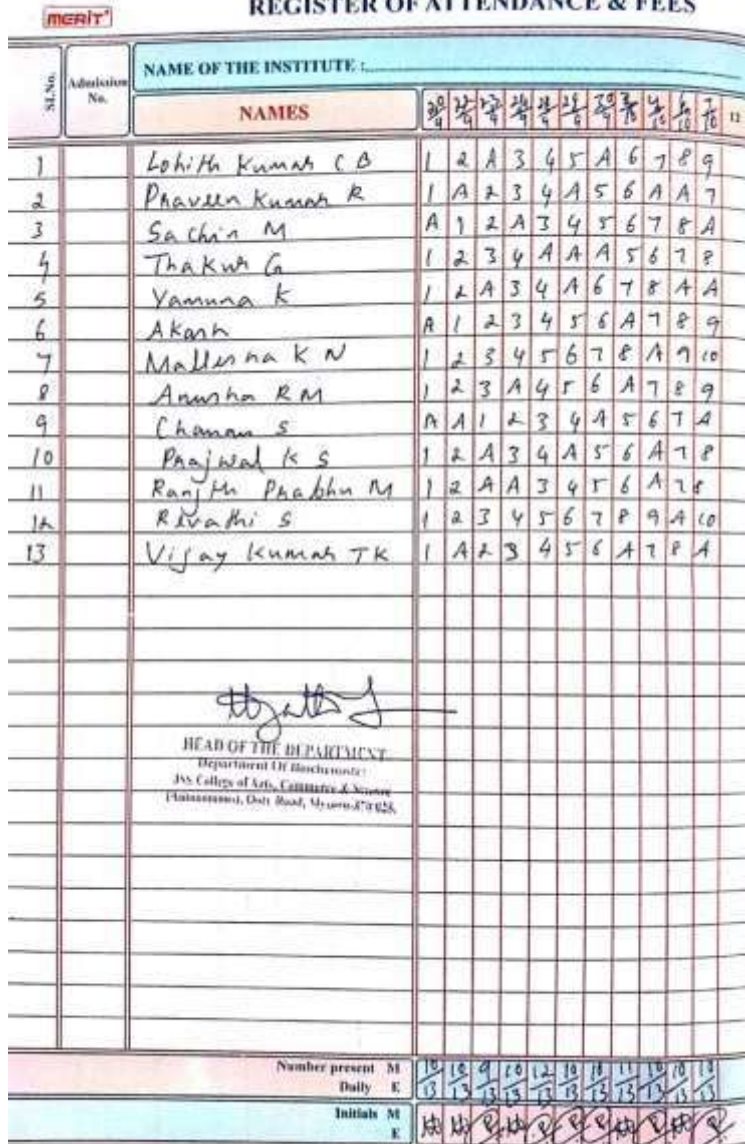 MERIT
REGISTER OF ATTENDANCE & FEES
Sl.No. Admission No. NAME OF THE INSTITUTE :
NAMES 12
1 Lohith Kumar C B 1 2 A 3 4 5 A 6 7 8 9
2 Praveen Kumar R 1 A 2 3 4 A 5 6 A A 7
3 Sachin M A 1 2 A 3 4 5 6 7 8 A
4 Thakur G 1 2 3 4 A A A 5 6 7 8
5 Yamuna K 1 2 A 3 4 A 6 7 8 A A
6 Akash A 1 2 3 4 5 6 A 7 8 9
7 Mallesha K N 1 2 3 4 5 6 7 8 A 9 10
8 Anusha R M 1 2 3 A 4 5 6 A 7 8 9
9 Chanan S A A 1 2 3 4 A 5 6 7 A
10 Prajwal K S 1 2 A 3 4 A 5 6 A 7 8
11 Ranjith Prabhu M 1 2 A A 3 4 5 6 A 7 8
12 Revathi S 1 2 3 4 5 6 7 8 9 A 10
13 Vijay Kumar T K 1 A 2 3 4 5 6 A 7 8 A
HEAD OF THE DEPARTMENT
Department Of Biochemistry
JSS College of Arts, Commerce & Science
Ooty Road, Mysuru-570 025.
Number present M 10/13 10/13 9/13 10/13 12/13 10/13 10/13 11/13 10/13 10/13 10/13
Daily E
Initials M
E